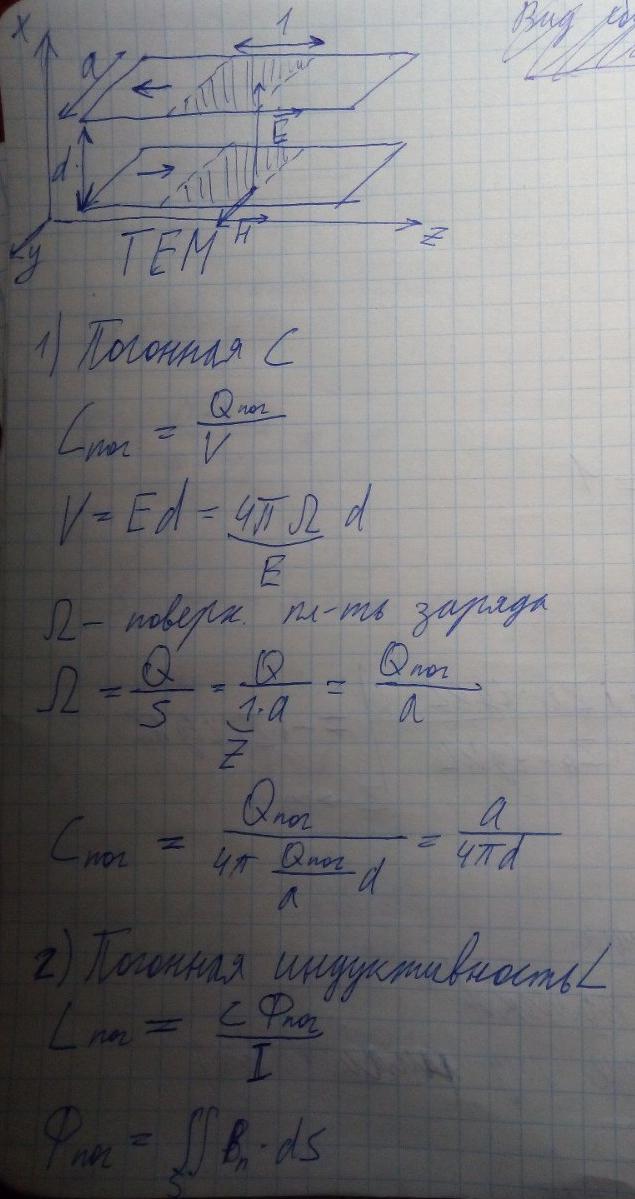 Вид
X
1
a
E
d
H
Z
y
TEM
1) Погонная C
Cпог = Qпог / V
V = Ed = 4πΩ d
E
Ω – поверх. пл-ть заряда
Ω = Q / S = Q / 1·a = Qпог / a
Z
Cпог = Qпог / 4π Qпог / a d = a / 4πd
2) Погонная индуктивность L
Lпог = c Фпог / I
Фпог = ∬ Bn · ds
S